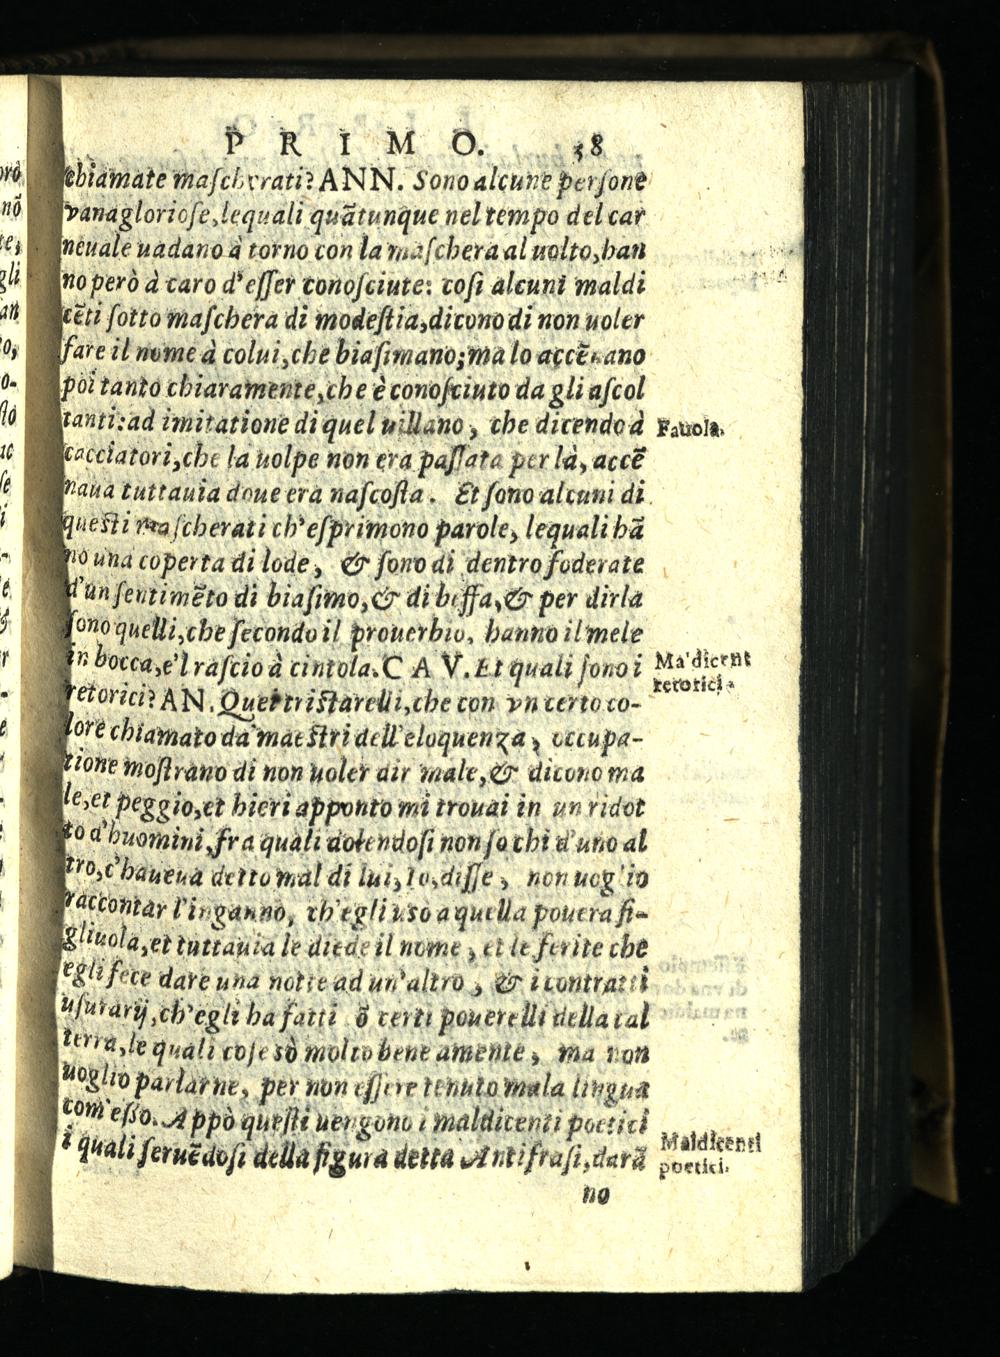 PRIMO. 38
chiamate maſcherati? ANN. Sono alcune perſone
vanaglorioſe, lequali quãtunque nel tempo del car
neuale uadano à torno con la maſchera al uolto, han
no però à caro d'eſſer conoſciute: coſi alcuni maldi
cẽti ſotto maſchera di modeſtia, dicono di non uoler
fare il nome à colui, che biaſimano; ma lo accẽnano
poi tanto chiaramente, che è conoſciuto da gli aſcol
tanti: ad imitatione di quel uillano, che dicendo à
Fauola.
cacciatori, che la uolpe non era paſſata per là, accẽ
naua tuttauia doue era naſcoſta. Et ſono alcuni di
queſti maſcherati ch'eſprimono parole, lequali hã
no una coperta di lode, & ſono di dentro foderate
d'un ſentimẽto di biaſimo, & di beffa, & per dirla
ſono quelli, che ſecondo il prouerbio, hanno il mele
in bocca, e'l raſcio à cintola. CAV. Et quali ſono i
Ma'dicent
retorici.
retorici? AN. Quei triſtarelli, che con vn certo co-
lore chiamato da maeſtri dell'eloquenza, occupa-
tione moſtrano di non uoler dir male, & dicono ma
le, et peggio, et hieri apponto mi trouai in un ridot
to d'huomini, fra quali dolendoſi non ſo chi d'uno al
tro, c'haueua detto mal di lui, Io, diſſe, non uog'io
raccontar l'inganno, ch'egli uso a quella pouera fi-
gliuola, et tuttauia le diede il nome, et le ferite che
egli fece dare una notte ad un'altro, & i contratti
uſurarij, ch'egli ha fatti cõ certi pouerelli della tal
terra, le quali coſe sò molto bene amente, ma non
uoglio parlarne, per non eſſere tenuto mala lingua
com'eſſo. Appò queſti uengono i maldicenti poetici
Maldicenti
poetici.
i quali ſeruẽdoſi della figura detta Antifraſi, darã
no